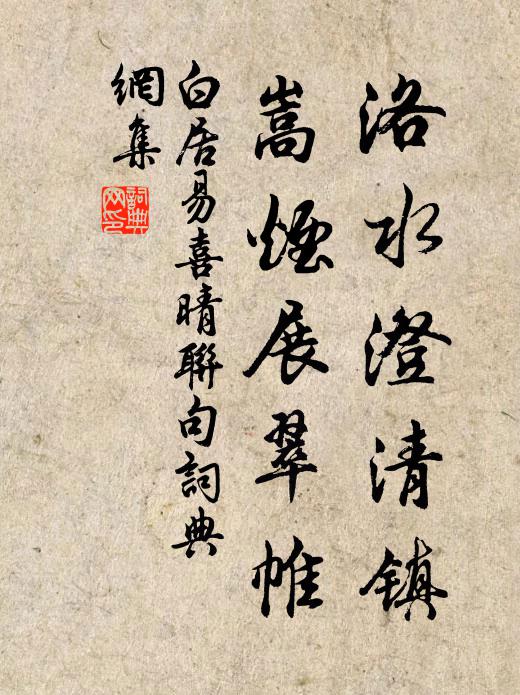 洛水澄清镇
嵩煙展翠帷
白居易喜晴聯句詞典
網集
詞典
网印